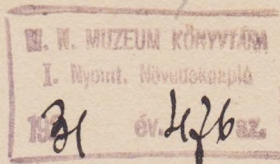 M. N. MUZEUM KÖNYVTÁRA
I. Nyomt. Növedéknapló
1931 év. 476 az.